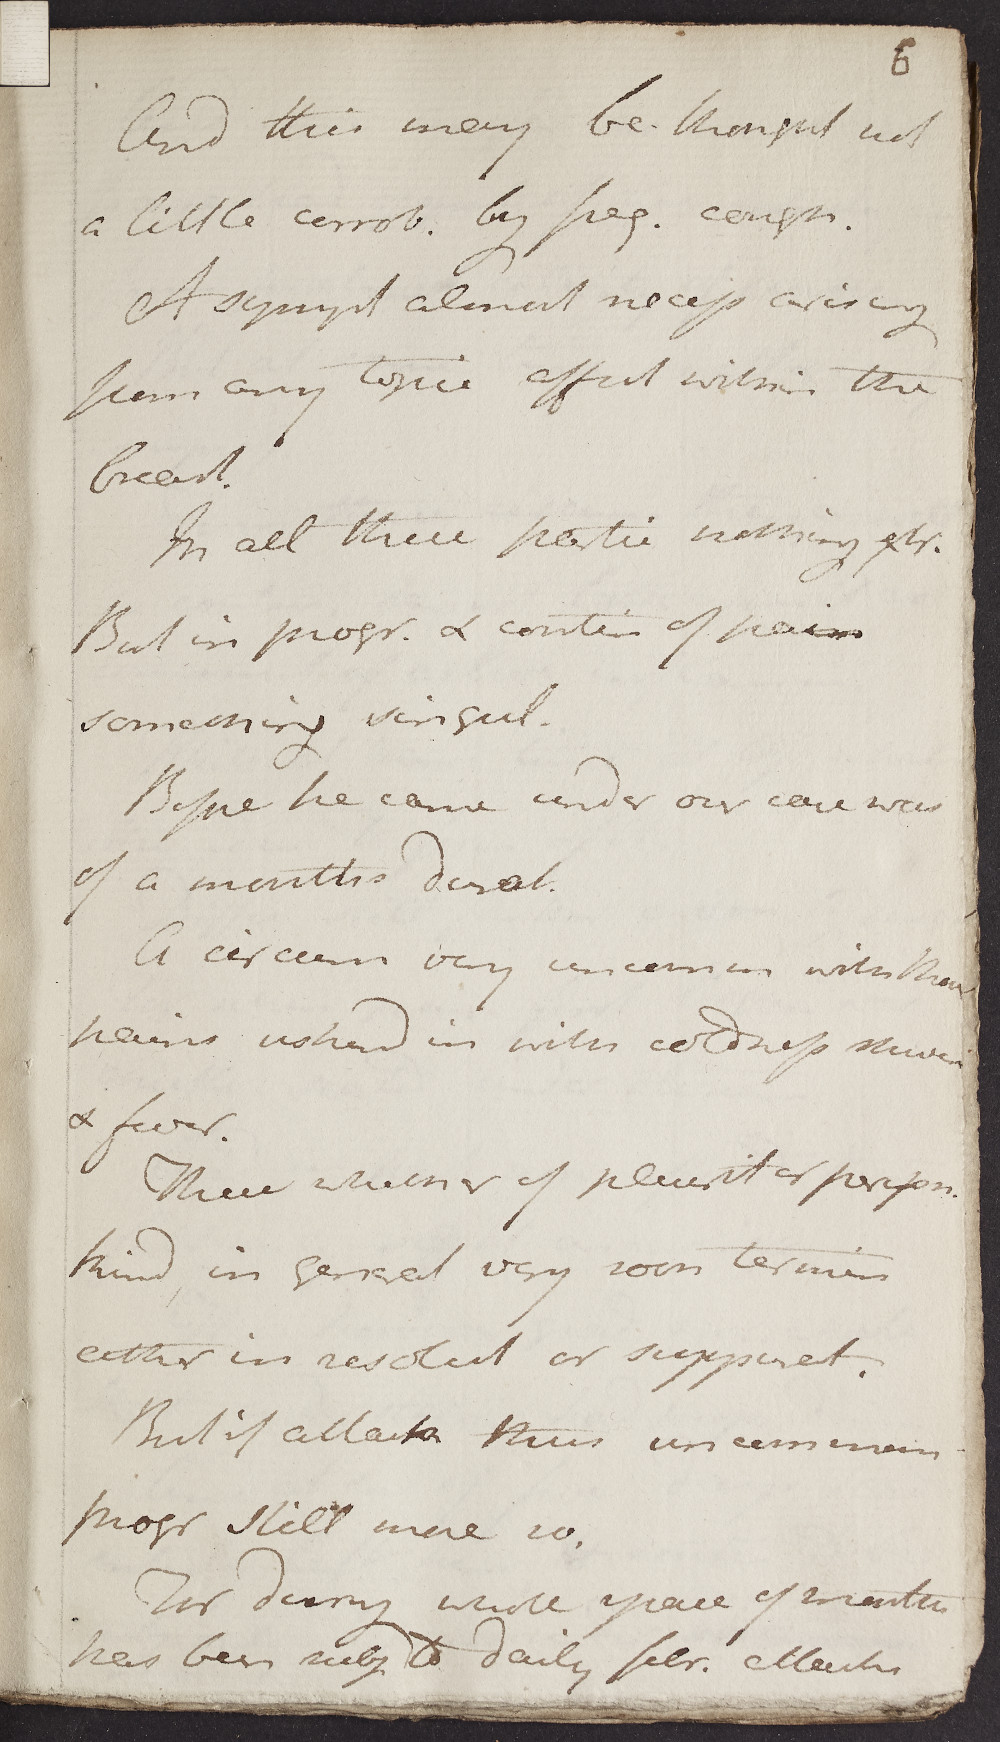 6
And this may be thought not
a little corrob. by freq. cough.
A sympt almost necess arising
from any topic affect within the
breast.
In all these partic nothing xtr.
But in progr. & contin of pain
something singul.
Before he came under our care was
of a months durat.
A circum very uncommon with those
pains usherd in with coldness shiveri
& fever.
These whether of pleurit or peripn.
kind, in general very soon termin
either in resolut or suppurat.
But if attack thus uncommon
progr still more so.
For during whole space of months
has been subj to daily febr. attacks